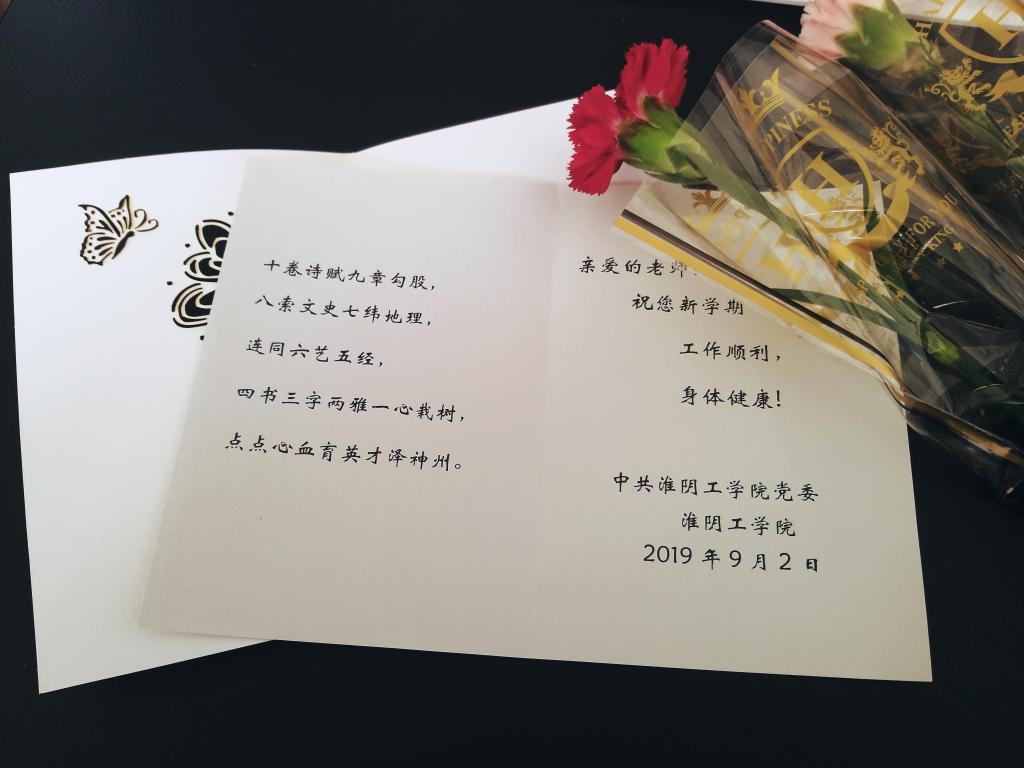 十卷诗赋九章勾股，
八索文史七纬地理，
连同六艺五经，
四书三字两雅一心栽树，
点点心血育英才泽神州。
亲爱的老师
祝您新学期
工作顺利，
身体健康！
中共淮阴工学院党委
淮阴工学院
2019 年 9 月 2 日
PINESS
H
FOR YOU
KING
H